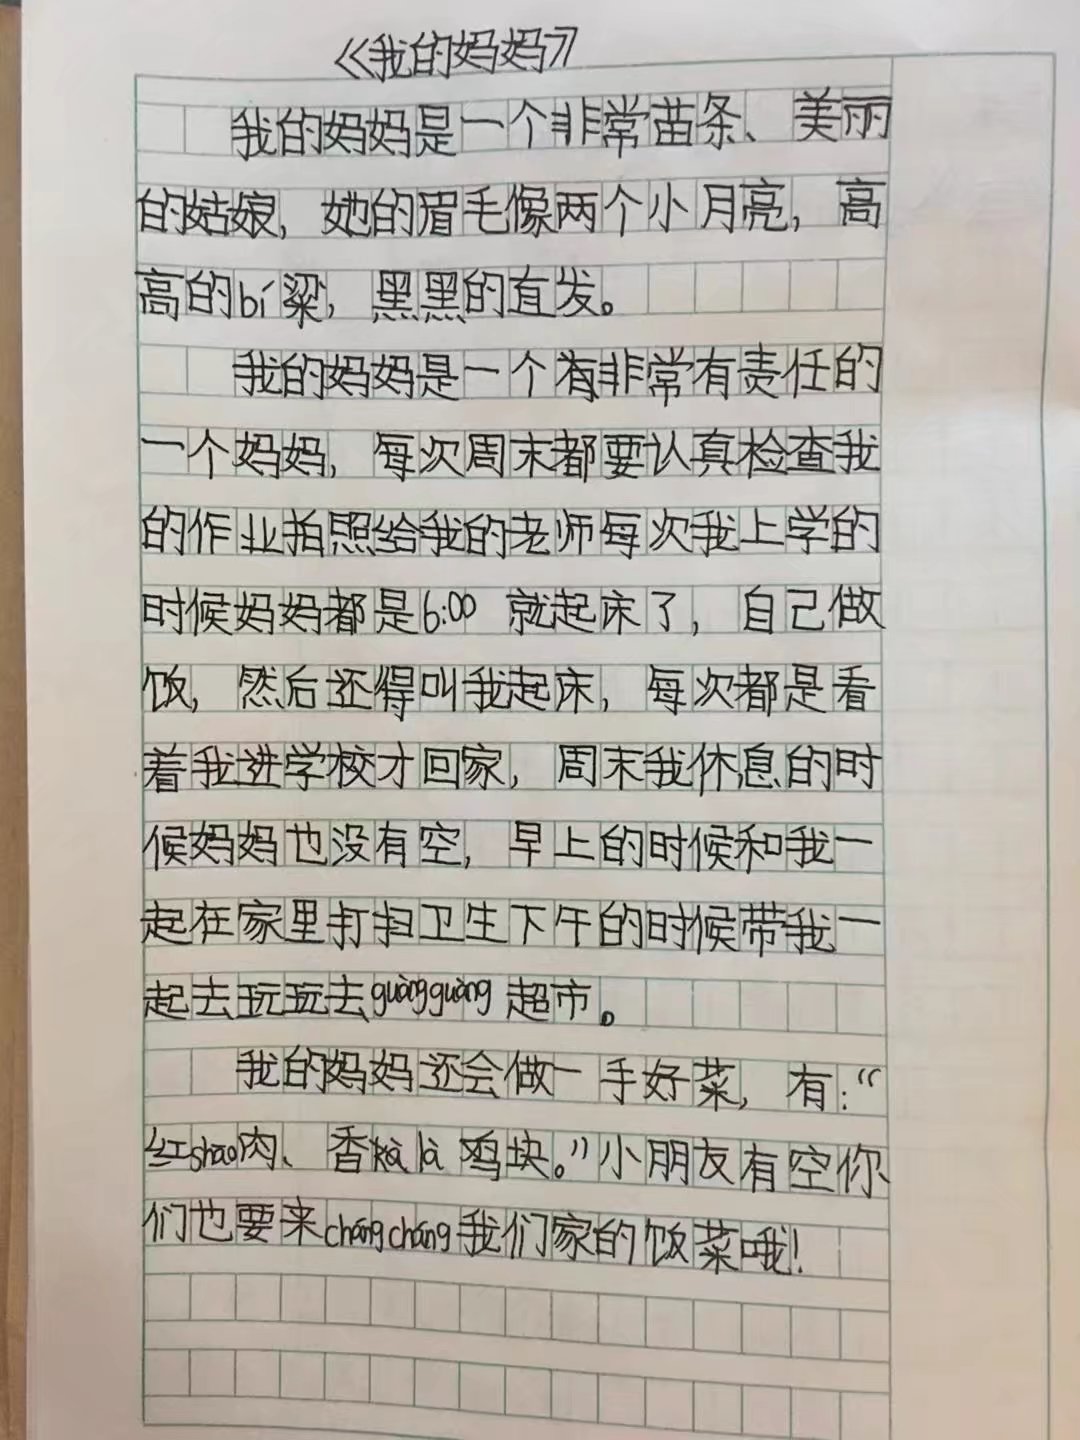 《我的妈妈》
我的妈妈是一个非常苗条、美丽
的姑娘，她的眉毛像两个小月亮，高
高的bí梁，黑黑的直发。
我的妈妈是一个有非常有责任的
一个妈妈，每次周末都要认真检查我
的作业拍照给我的老师每次我上学的
时候妈妈都是6:00 就起床了，自己做
饭，然后还得叫我起床，每次都是看
着我进学校才回家，周末我休息的时
候妈妈也没有空，早上的时候和我一
起在家里打扫卫生下午的时候带我一
起去玩玩去guàngguàng超市。
我的妈妈还会做一手好菜，有：“
红shāo肉、香kà là 鸡块。”小朋友有空你
们也要来chángcháng我们家的饭菜哦！